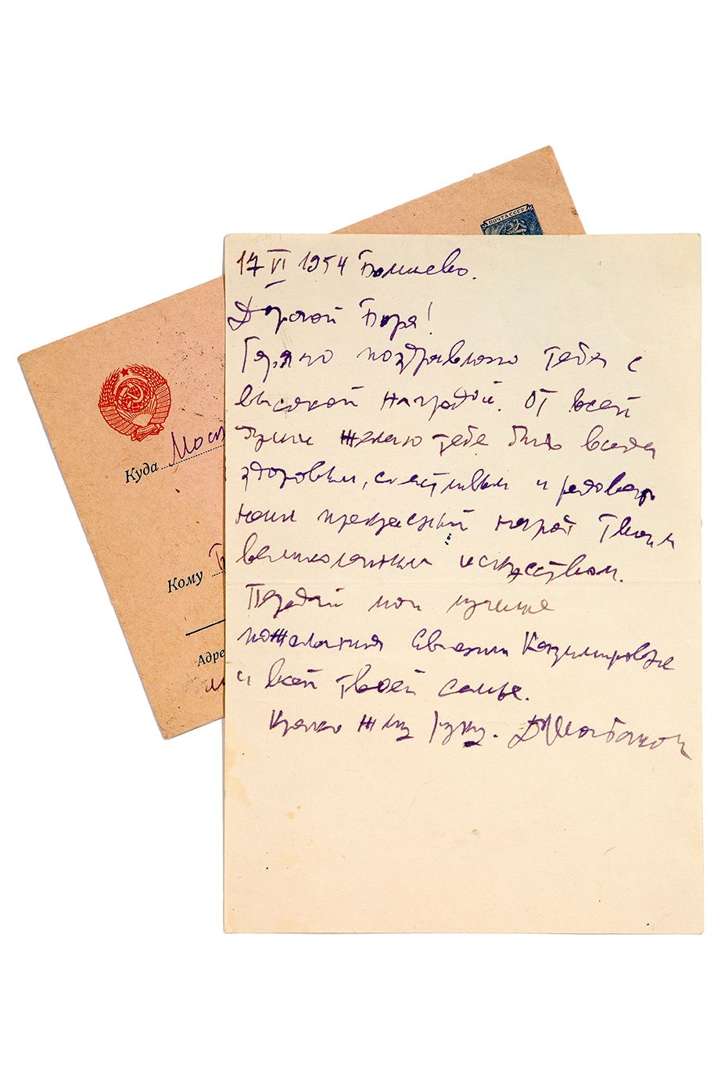 ПОЧТА СССР
17 VI 1954 Болшево.
Дорогой Боря!
Горячо поздравляю тебя с
высокой наградой. От всей
души желаю тебе быть всегда
здоровым, счастливым и радовать
наш прекрасный народ Твоим
великолепным искусством.
Передай мои лучшие
пожелания Евгении Казимировне
и всей твоей семье.
Крепко жму руку.
Куда Моск
Кому
Адре